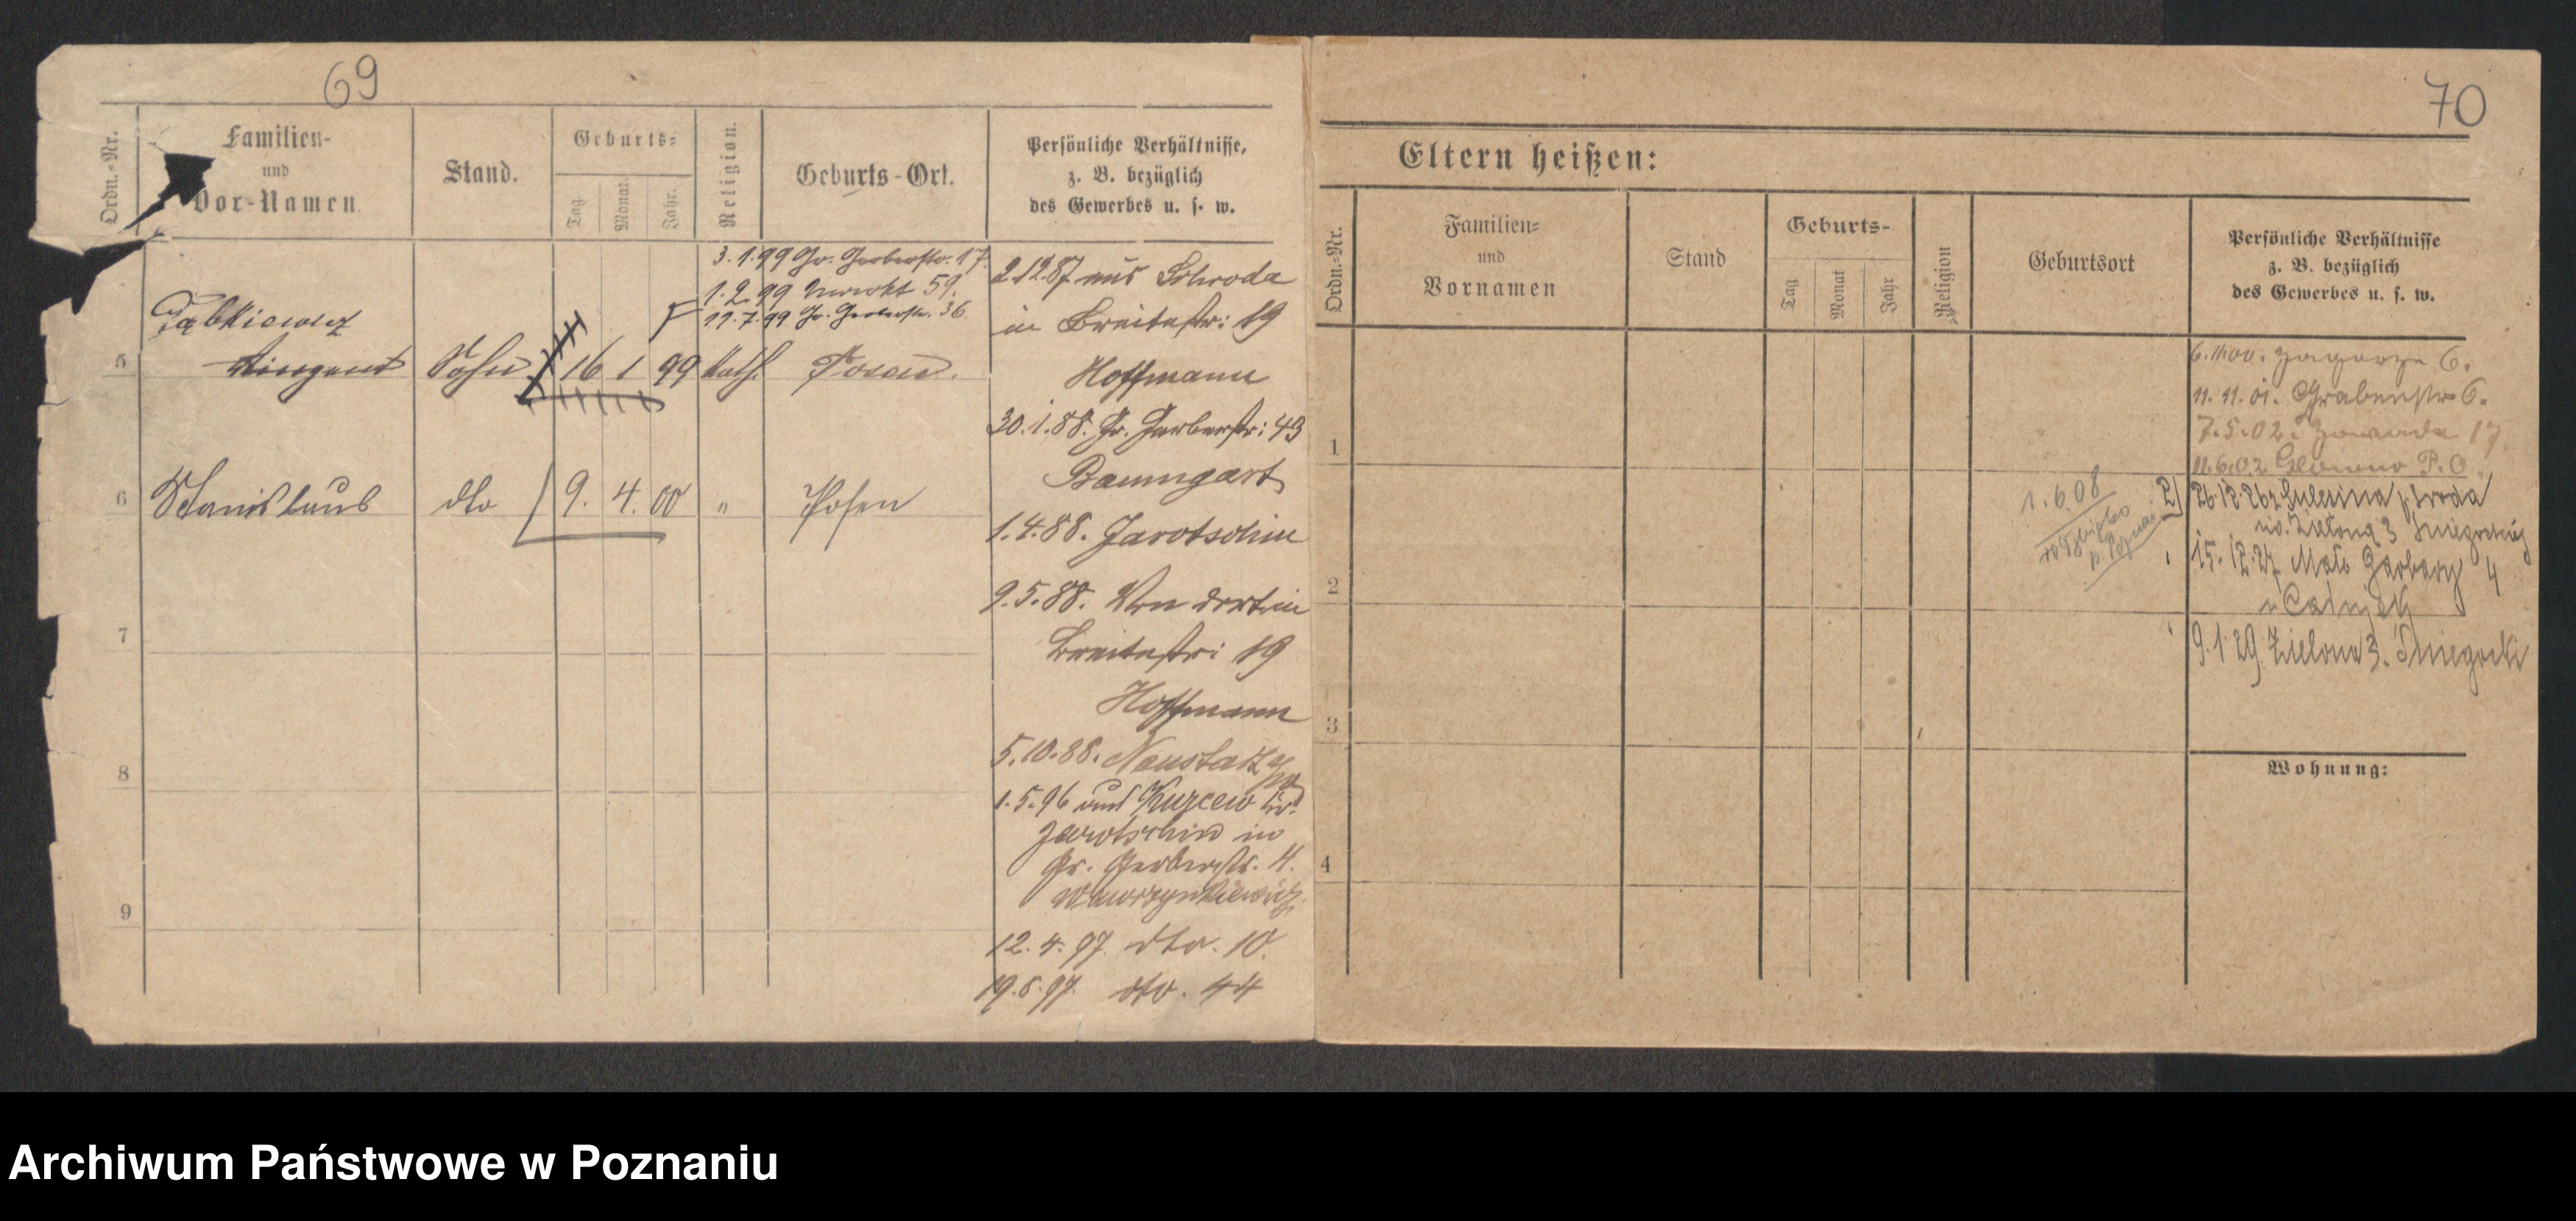 69
Ordn.-Nr.
Familien-
und
Vor-Namen.
Stand.
Geburts-
Tag
Monat.
Jahr.
Religion.
Geburts-Ort.
Persönliche Verhältnisse,
z. B. bezüglich
des Gewerbes u. s. w.
3.1.99 Gr. Gerberstr. 17.
1.2.99 59.
11.7.99 Gr. Gerberstr. 36
5
Sohn 16 1 99 kath. Posen.
6 Stanislaus dto 9. 4. 00 " Posen
7
8
9
2.12.87 aus Schroda
in Breitestr: 19
Hoffmann
30.1.88. Gr. Gerberstr: 43
Baumgart
1.4.88. Jarotschin
9.5.88. Von dort in
Breitestr: 19
Hoffmann
5.10.88. Neustadt
1.5.96 aus Kr.
Jarotschin in
Gr. Gerberstr. 4.
Wawrzynkiewicz
12.4.97. dto. 10.
19.6.97. dto. 44
70
Eltern heißen:
Ordn.-Nr.
Familien-
und
Vornamen
Stand
Geburts-
Tag
Monat
Jahr
Religion
Geburtsort
Persönliche Verhältnisse
z. B. bezüglich
des Gewerbes u. s. w.
6.11.00. 6.
11.11.01. Grabenstr 6.
7.5.02. 17
11.6.02 P. O.
1.6.08
2) 26.12.26 z
Zielona 3
15.12.27 Małe Garbary 4
9.1.29. Zielona 3. Śniegocki
1
2
3
4
Wohnung:
Archiwum Państwowe w Poznaniu